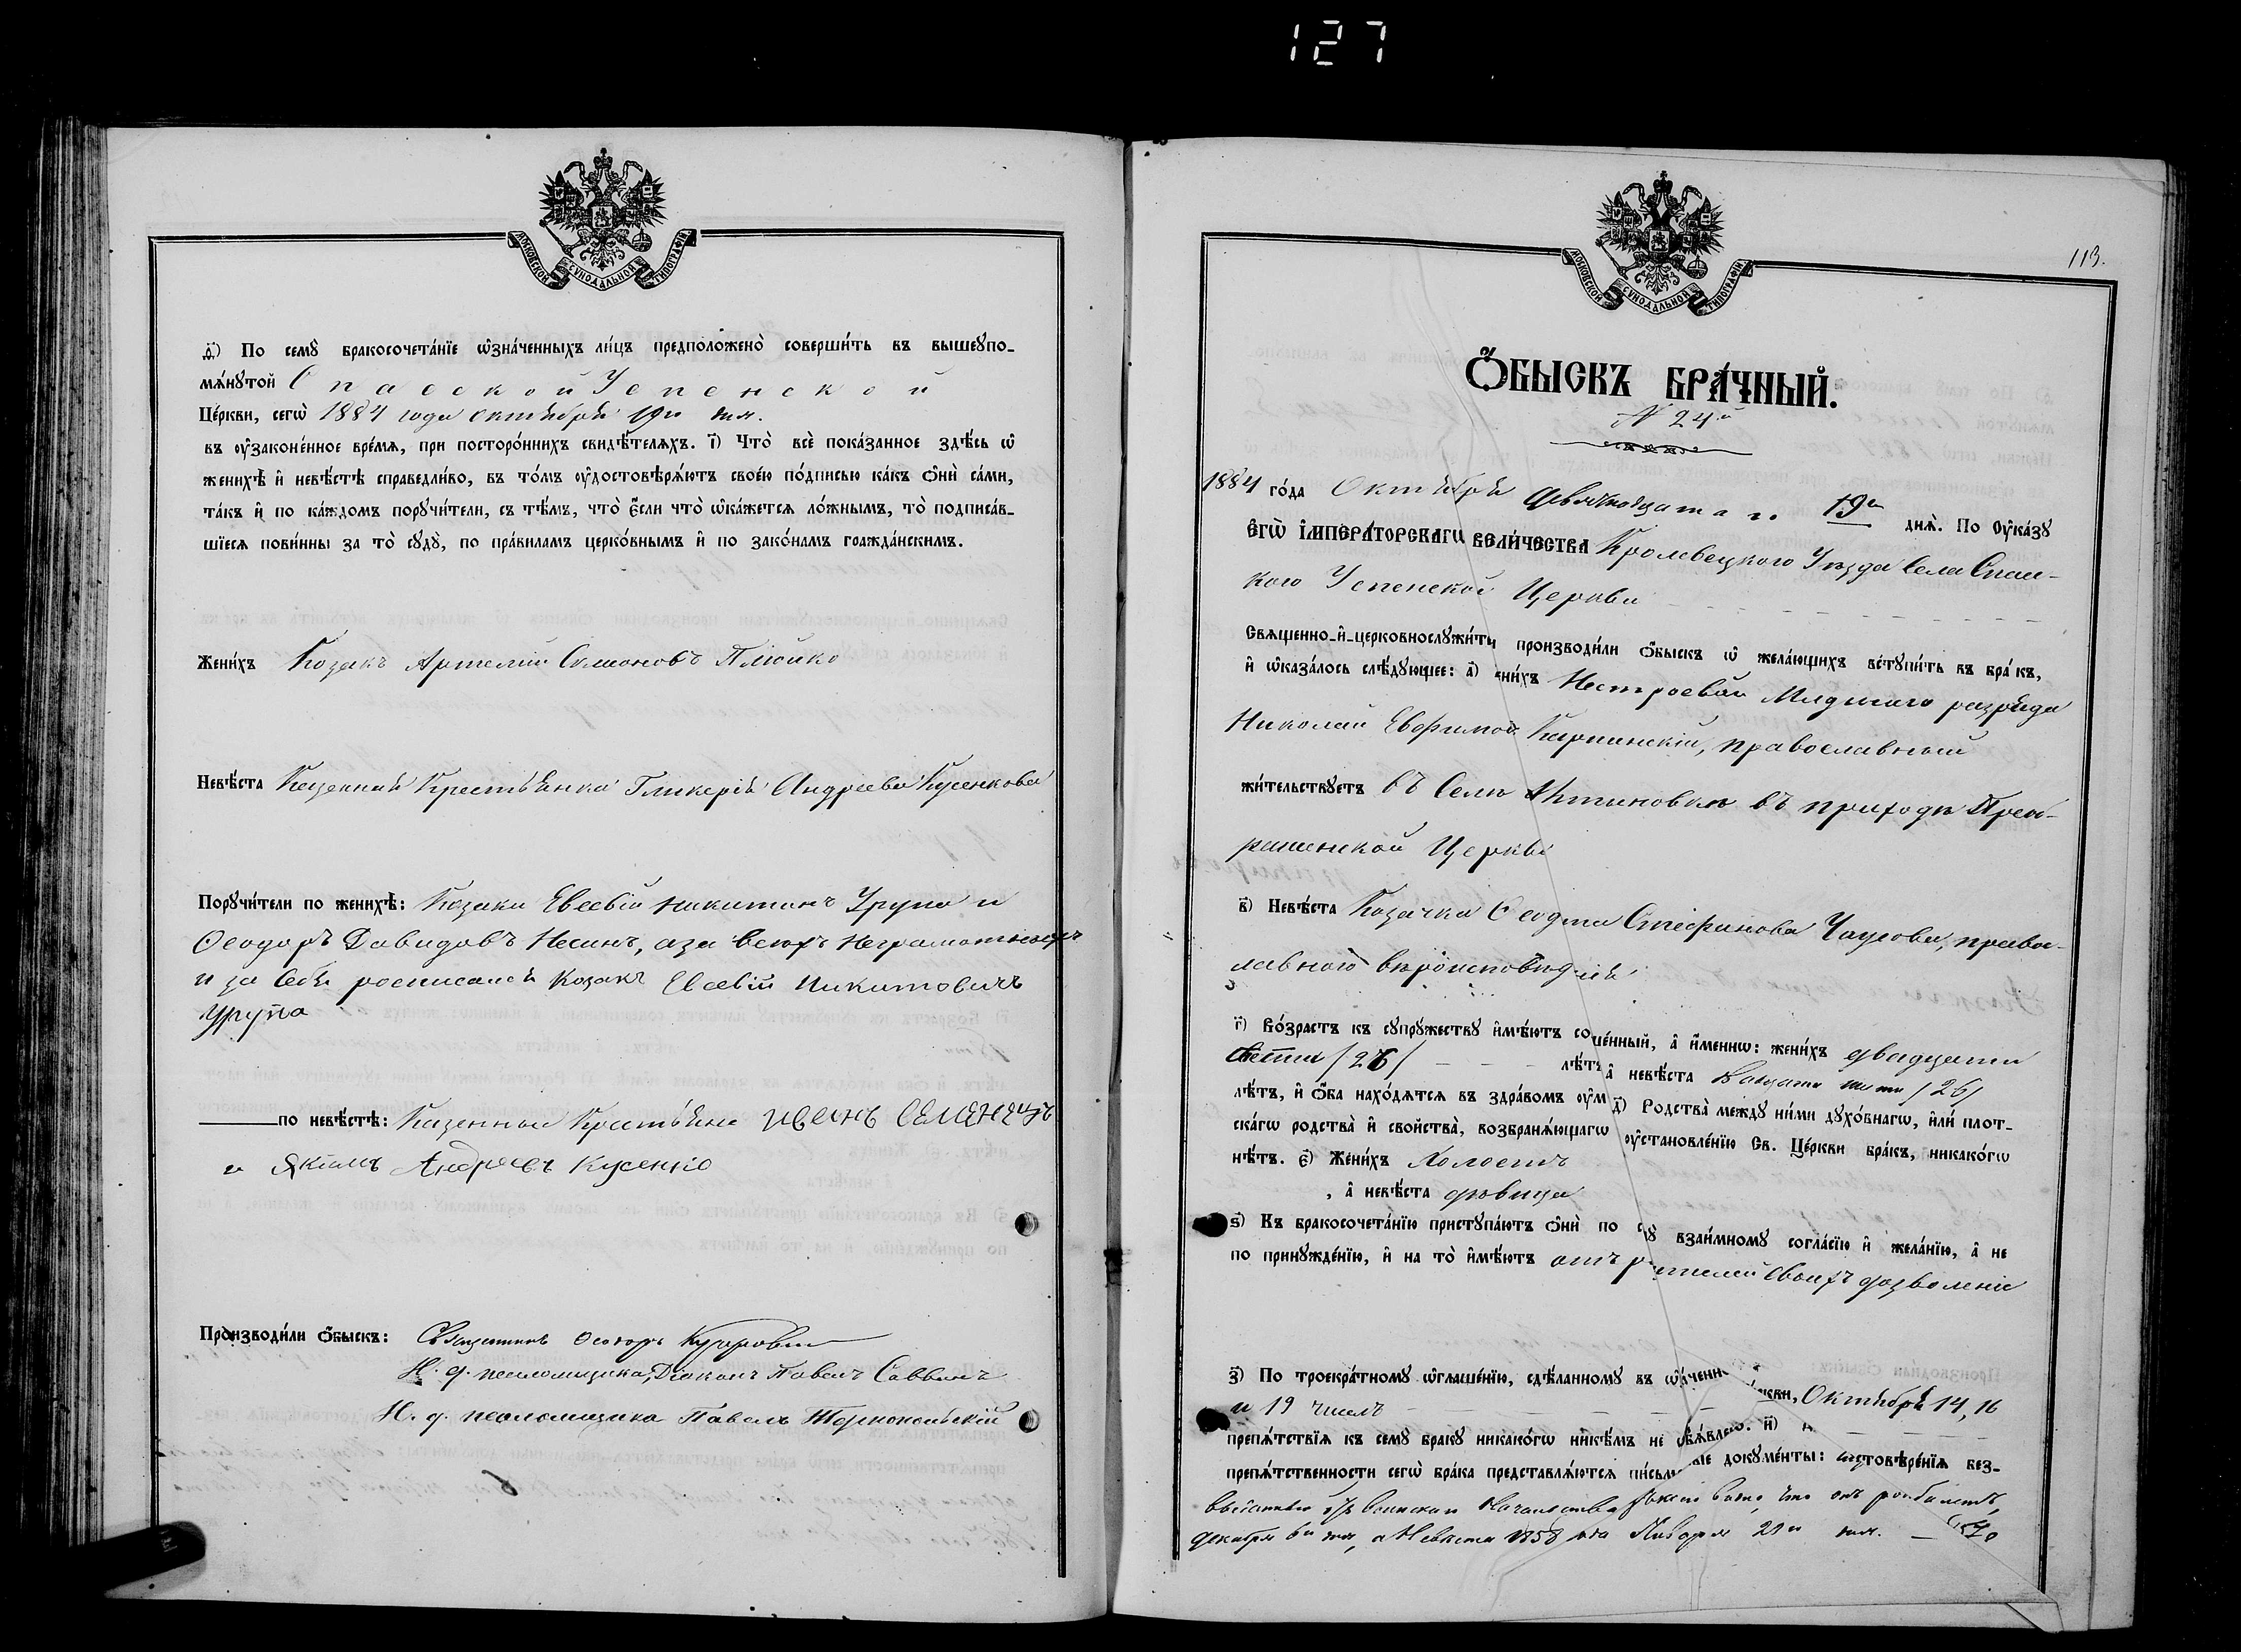 127
МОСКОВСКОЙ СѴНОДАЛЬНОЙ ТИПОГРАФІИ
д҃) По семꙋ̀ бракосочета́нїе ѡ҆зна́ченныхъ ли́цъ предположено̀ соверши́ть въ вышеꙋпо-
мѧ́нꙋтой Спасской Успенской
Це́ркви, сегѡ̀ 1884 года Октября 19го дня.
въ ѹ҆законе́нное вре́мѧ, при посторо́ннихъ свидѣ́телѧхъ. і҃) Что̀ всѐ пока́занное здѣ́сь ѡ҆
женихѣ̀ и҆ невѣ́стѣ справедли́во, въ то́мъ ѹ҆достовѣрѧ́ютъ свое́ю по́дписью ка́къ ѻ҆нѝ са́ми,
та́къ и҆ по ка́ждомъ порꙋчи́тели, съ тѣ́мъ, что̀ є҆́сли что̀ ѡ҆ка́жетсѧ ло́жнымъ, то̀ подписа́в-
шїесѧ пови́нны за то̀ сꙋдꙋ̀, по пра́виламъ церко́внымъ и҆ по зако́намъ гражда́нскимъ.
Жени́хъ Козакъ Артемій Симоновъ Плюйко
Невѣ́ста Казенная Крестьянка Гликерія Андреева Кусенкова
Порꙋчи́тели по женихѣ̀: Козаки Евсевій Никитинъ Урупа и
Ѳеодоръ Давидовъ Несинъ, а за всехъ неграмотныхъ
и за себя росписался Козакъ Евсевій Никитовичъ
Урупа
по невѣ́стѣ: Казенные Крестьяне Иванъ Семенецъ
и Якимъ Андреевъ Кусенко
Производи́ли ѻ҆́быскъ: Священникъ Ѳеодоръ
И. д. псаломщика, Діаконъ Павелъ Саввинъ
И. д. псаломщика Павелъ Тарнопольскій
МОСКОВСКОЙ СѴНОДАЛЬНОЙ ТИПОГРАФІИ
113.
Ѻ҆́БЫСКЪ БРА́ЧНЫЙ.
№ 24й
1884 го́да Октября девятнадцатаго 19го днѧ̀. По Оу҆ка́зꙋ
Є҆ГѠ̀ І҆МПЕРА́ТОРСКАГѠ ВЕЛИ́ЧЕСТВА Кролевецкого Уѣзда Села Спас-
кого Успенской Церкви
Свѧщенно-и҆-церковнослꙋжи́ти производи́ли ѻ҆́быскъ ѡ҆ жела́ющихъ встꙋпи́ть въ бра́къ,
и҆ ѡ҆каза́лось слѣ́дꙋющее: а҃) нихъ Нестроевой Младшаго разряда
Николай Евфимов Карпинскій, православный
жи́тельствꙋетъ въ Селѣ въ приходѣ Прео-
раженской Церкви
в҃) Невѣ́ста Козачка Стефанова Чаусова, право-
лавного вѣроисповѣданія
г҃) Во́зрастъ къ сꙋпрꙋ́жествꙋ и҆мѣ́ютъ со ше́нный, а҆ и҆́меннѡ: жени́хъ двадцати
шести /26/ лѣ́тъ а҆ невѣ́ста двадцати шести /26/
лѣ́тъ, и҆ ѻ҆́ба нахо́дѧтсѧ въ здра́вомъ ѹ҆м д҃) Родства̀ междꙋ ни́ми дꙋхо́внагѡ, и҆лѝ пло́т-
ска́гѡ родства̀ и҆ сво́йства̀, возбранѧ́ющагѡ ѹ҆становле́нїю Св. Це́ркви бра́къ, никако́гѡ
нѣ́тъ. є҃) Жени́хъ Холостъ
, а҆ невѣ́ста дѣвица
ѕ҃) Къ бракосочета́нїю пристꙋпа́ютъ ѻ҆нѝ по с ꙋ взаи́мномꙋ согла́сїю и҆ жела́нїю, а҆ не
по принꙋжде́нїю, и҆ на то̀ и҆мѣ́ютъ отъ родителей своихъ дозволеніе
з҃) По троекра́тномꙋ ѡ҆глаше́нїю, сдѣ́ланномꙋ въ ѡ҆ ченн кви, Октября 14, 16
и 19 чиселъ
препѧ́тствїѧ къ семꙋ̀ бра́кꙋ никако́гѡ никѣ́мъ не ѡ҆бъѧ́влено. и҃)
препѧ́тственности сегѡ̀ бра́ка представлѧ́ютсѧ пи́сьм ные докꙋме́нты: стовѣре́нїѧ без-
Начальства видно, что онъ
декабря 6го дня, а Невѣста 1858 года Января 29го дня.